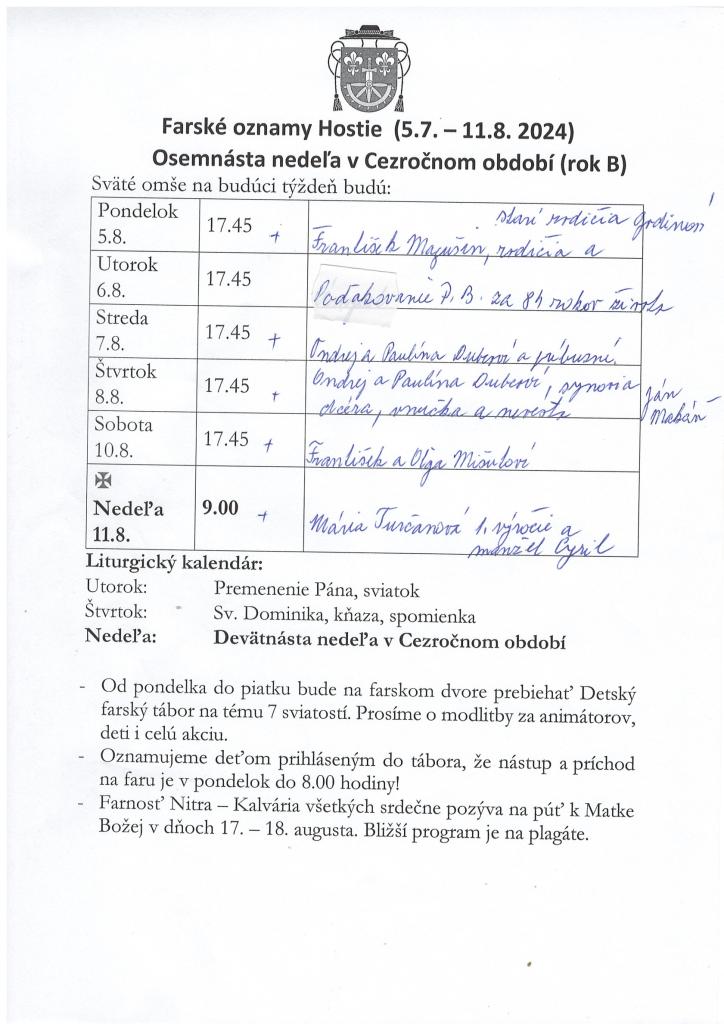 Farské oznamy Hostie (5.7. – 11.8. 2024)
Osemnásta nedeľa v Cezročnom období (rok B)
Sväté omše na budúci týždeň budú:
Pondelok 5.8. 17.45 + starí rodičia
František rodičia a
Utorok 6.8. 17.45 Poďakovanie P. B. za 84 rokov života
Streda 7.8. 17.45 + Ondrej a Paulína Duberoví a príbuzní.
Štvrtok 8.8. 17.45 + Ondrej a Paulína Duberoví, synovia Ján
dcéra, vnučka a nevesta
Sobota 10.8. 17.45 + František a Oľga Mišuloví
✠
Nedeľa 11.8. 9.00 + Mária Turčanová 1. výročie a
manžel Cyril
Liturgický kalendár:
Utorok: Premenenie Pána, sviatok
Štvrtok: Sv. Dominika, kňaza, spomienka
Nedeľa: Devätnásta nedeľa v Cezročnom období
- Od pondelka do piatku bude na farskom dvore prebiehať Detský
farský tábor na tému 7 sviatostí. Prosíme o modlitby za animátorov,
deti i celú akciu.
- Oznamujeme deťom prihláseným do tábora, že nástup a príchod
na faru je v pondelok do 8.00 hodiny!
- Farnosť Nitra – Kalvária všetkých srdečne pozýva na púť k Matke
Božej v dňoch 17. – 18. augusta. Bližší program je na plagáte.